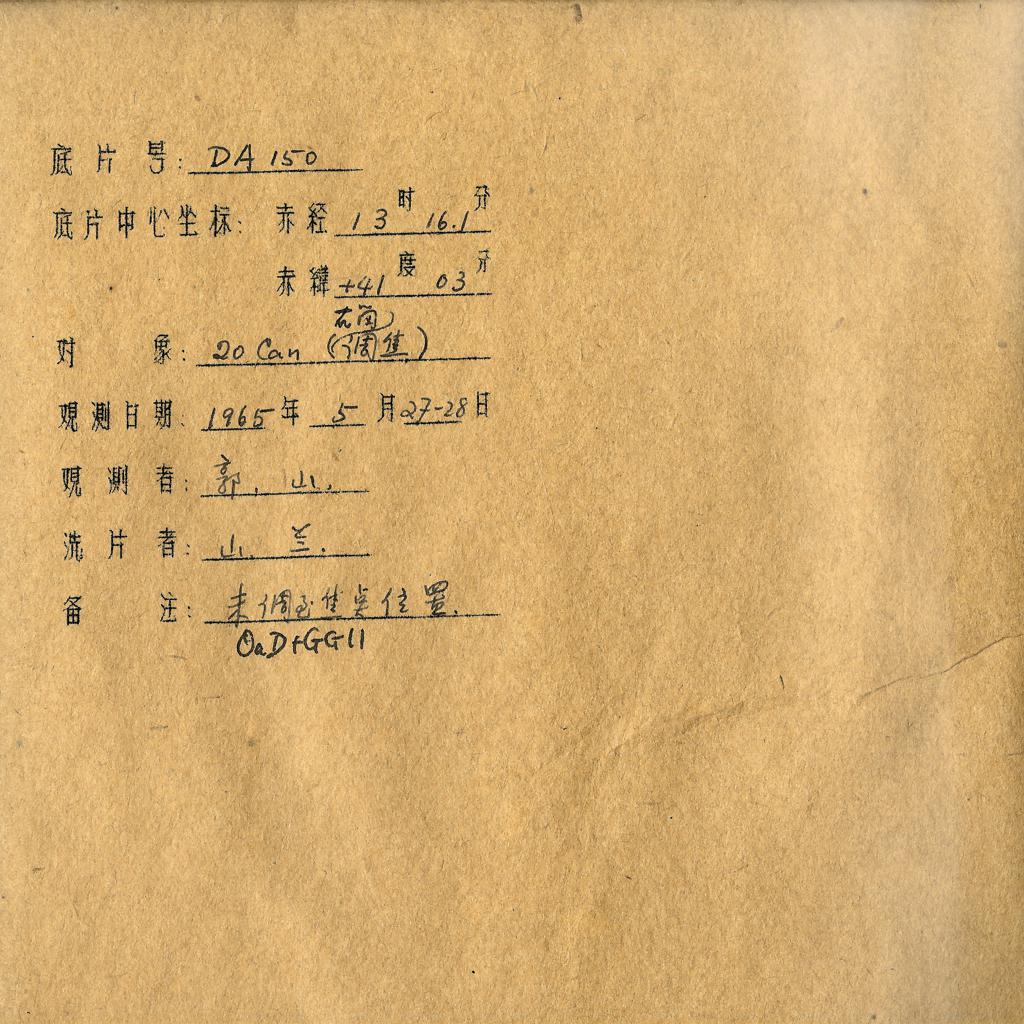 底片号: DA 150
底片中心坐标: 赤经 13时 16.1分
赤纬 +41度 03分
对象: 20 Can (调焦)
观测日期: 1965年 5月27-28日
观测者: 郭. 山.
洗片者: 山. 兰.
备注: 未调至焦点位置.
OaD+GG11